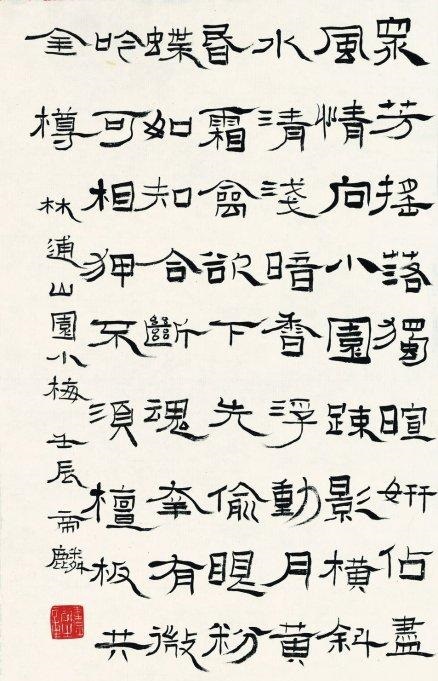 眾芳搖落獨暄妍佔盡
風情向小園踈影橫斜
水清淺暗香浮動月黃
昏霜禽欲下先偷眼粉
蝶如知合斷魂幸有微
吟可相狎不須檀板共
金樽
林逋山園小梅 壬辰 帝麟